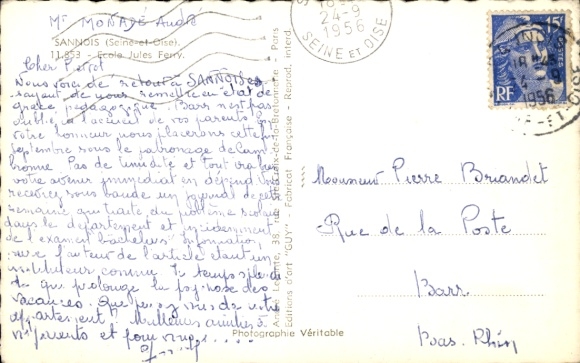 Mr MONADÉ André
SANNOIS (Seine-et-Oise).
11.853 - Ecole Jules Ferry.
Cher Pierrot
Nous voici de retour à SANNOIS et
de vous remettre en état de
grâce pédagogique. Barr n'est pas
oublié, ni l'accueil de vos parents. En
votre honneur nous placerons cette fin
septembre sous le patronage de Cam
bronne. Pas de timidité et tout
votre avenir immédiat en dépend. Vous
recevrez sous bande un journal de cette
semaine qui traite du problème scolaire
dans le département et incidemment
de l'examen "bacheliers". Information,
l'auteur de l'article étant un
instituteur comme le temps
qui prolonge la des
vacances. Que pensez-vous de votre
appartement ? Meilleures amitiés à
vos parents et pour vous
André Leconte, 38, rue Ste-Croix-de-la-Bretonnerie - Paris
Editions d'art "GUY" - Fabricat. Française - Reprod. interd.
Photographie Véritable
24-9
1956
SEINE ET OISE
15F
RF
1956
Monsieur Pierre Briandet
Rue de la Poste
Barr.
Bas-Rhin